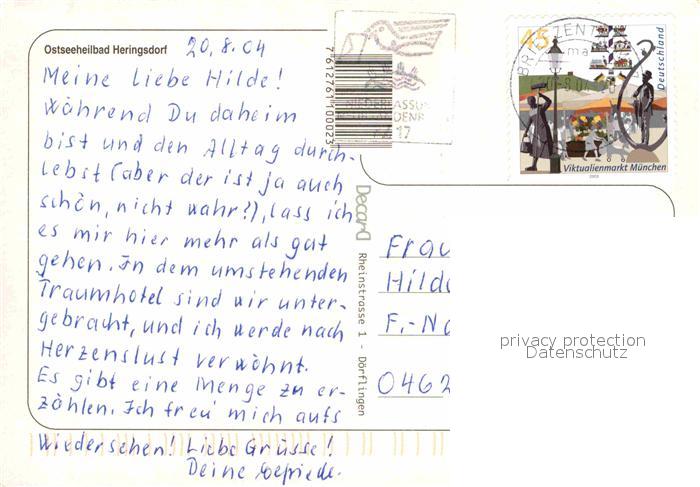 Ostseeheilbad Heringsdorf
20.8.04
Meine liebe Hilde!
Während Du daheim
bist und den Alltag durch-
lebst (aber der ist ja auch
schön, nicht wahr?), lass ich
es mir hier mehr als gut
gehen. In dem umstehenden
Traumhotel sind wir unter-
gebracht, und ich werde nach
Herzenslust verwöhnt.
Es gibt eine Menge zu er-
zählen. Ich freu mich aufs
Wiedersehen! Liebe Grüsse!
Deine
7612761100023
Decard
Rheinstrasse 1 - Dörflingen
BRIEFZENTRUM
17
45
Deutschland
Viktualienmarkt München
2003
Frau
Hilde
F.-Na
0462
privacy protection
Datenschutz